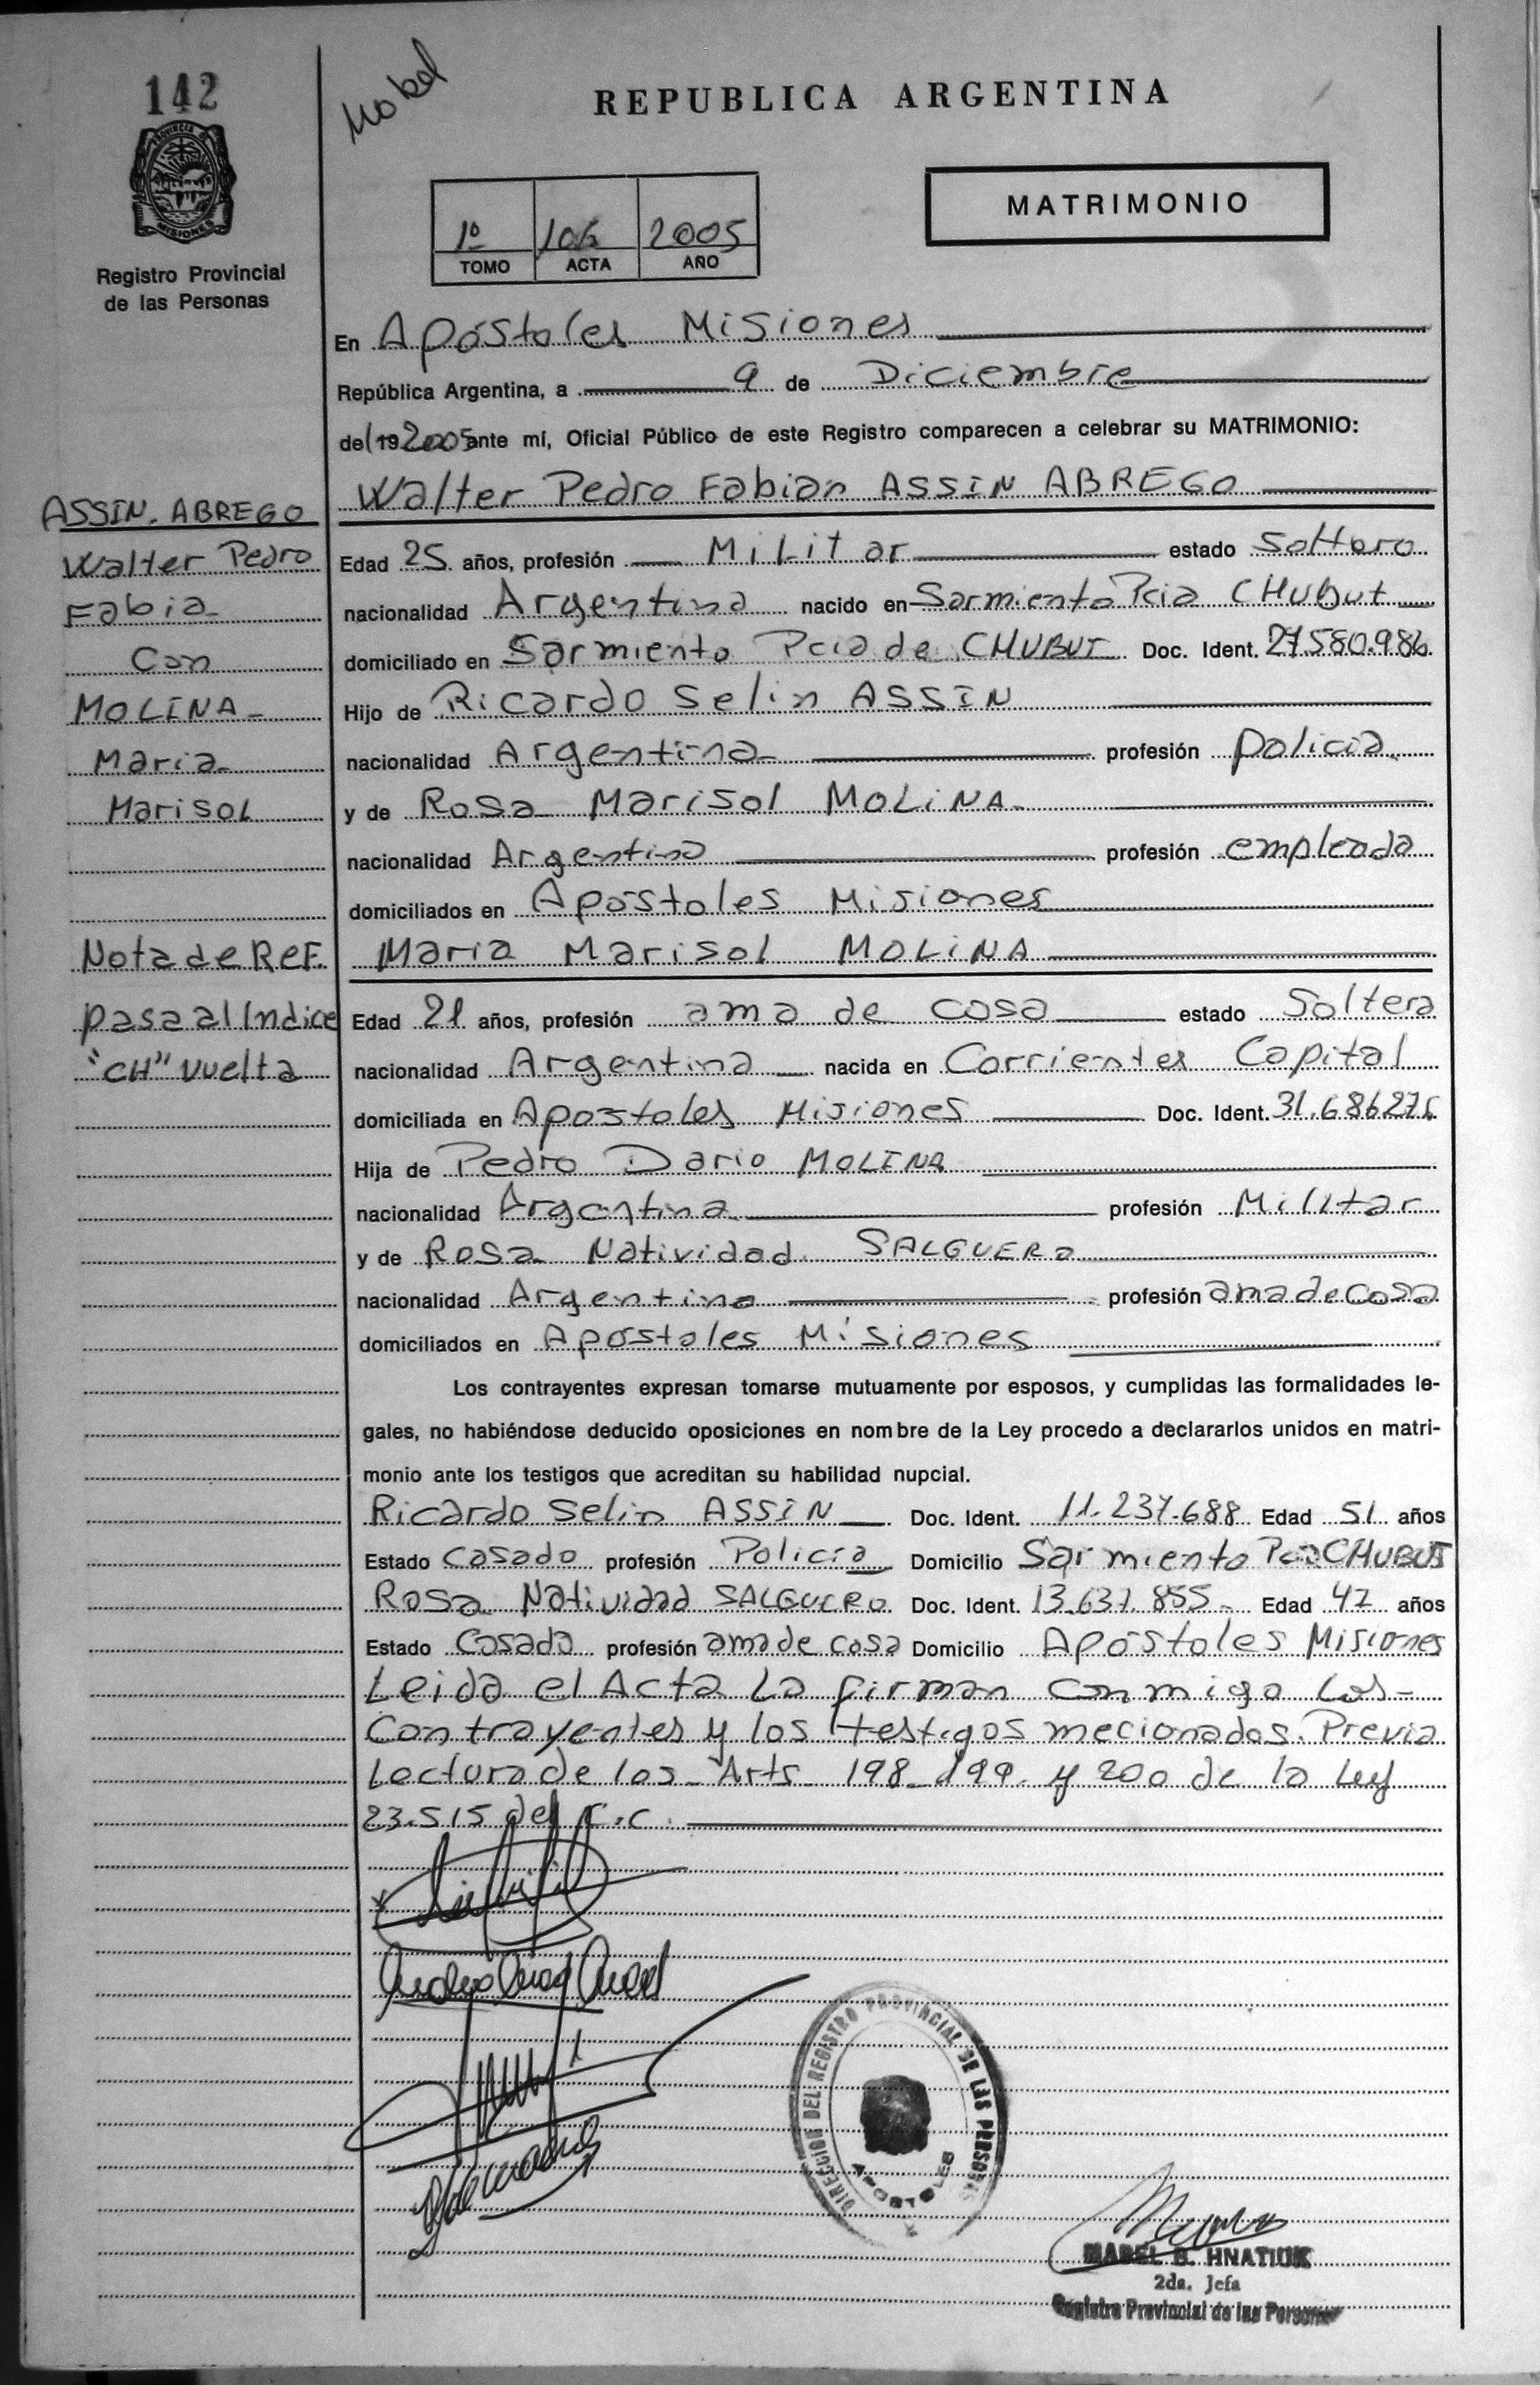 142
REPUBLICA ARGENTINA
PROVINCIA DE
MISIONES
Registro Provincial
de las Personas
1º 106 2005
TOMO ACTA AÑO
MATRIMONIO
En Apóstoles Misiones
República Argentina, a 9 de Diciembre
de 19 2005 ante mí, Oficial Público de este Registro comparecen a celebrar su MATRIMONIO:
Walter Pedro Fabian ASSIN ABREGO
Edad 25 años, profesión Militar estado Soltero
nacionalidad Argentina nacido en Sarmiento Pcia CHubut
domiciliado en Sarmiento Pcia de CHUBUT Doc. Ident. 27.580.986
Hijo de Ricardo Selin ASSIN
nacionalidad Argentina profesión policia
y de Rosa Marisol MOLiNA
nacionalidad Argentina profesión empleada
domiciliados en Apóstoles Misiones
Maria Marisol MOLiNA
Edad 21 años, profesión ama de casa estado Soltera
nacionalidad Argentina nacida en Corrientes Capital
domiciliada en Apostoles Misiones Doc. Ident. 31.686.276
Hija de Pedro Dario MOLINA
nacionalidad Argentina profesión Militar
y de Rosa Natividad SALGUERO
nacionalidad Argentina profesión ama de casa
domiciliados en Apóstoles Misiones
Los contrayentes expresan tomarse mutuamente por esposos, y cumplidas las formalidades le-
gales, no habiéndose deducido oposiciones en nombre de la Ley procedo a declararlos unidos en matri-
monio ante los testigos que acreditan su habilidad nupcial.
Ricardo Selin ASSIN Doc. Ident. 11.237.688 Edad 51 años
Estado Casado profesión Policía Domicilio Sarmiento Pcia CHUBUT
Rosa Natividad SALGUERO Doc. Ident. 13.637.855 Edad 47 años
Estado Casada profesión ama de casa Domicilio Apóstoles Misiones
Leida el Acta La firman conmigo los
Contrayentes y los testigos mecionados. Previa
Lectura de los Arts 198 199 y 200 de la Ley
23.515 del C.C.
ASSIN. ABREGO
Walter Pedro
Fabia
Con
MOLINA
Maria
Marisol
Nota de Ref.
pasa al Indice
"CH" vuelta
DIRECCION DEL REGISTRO PROVINCIAL DE LAS PERSONAS
APOSTOLES
MABEL B. HNATIUK
2da. Jefa
Registro Provincial de las Personas